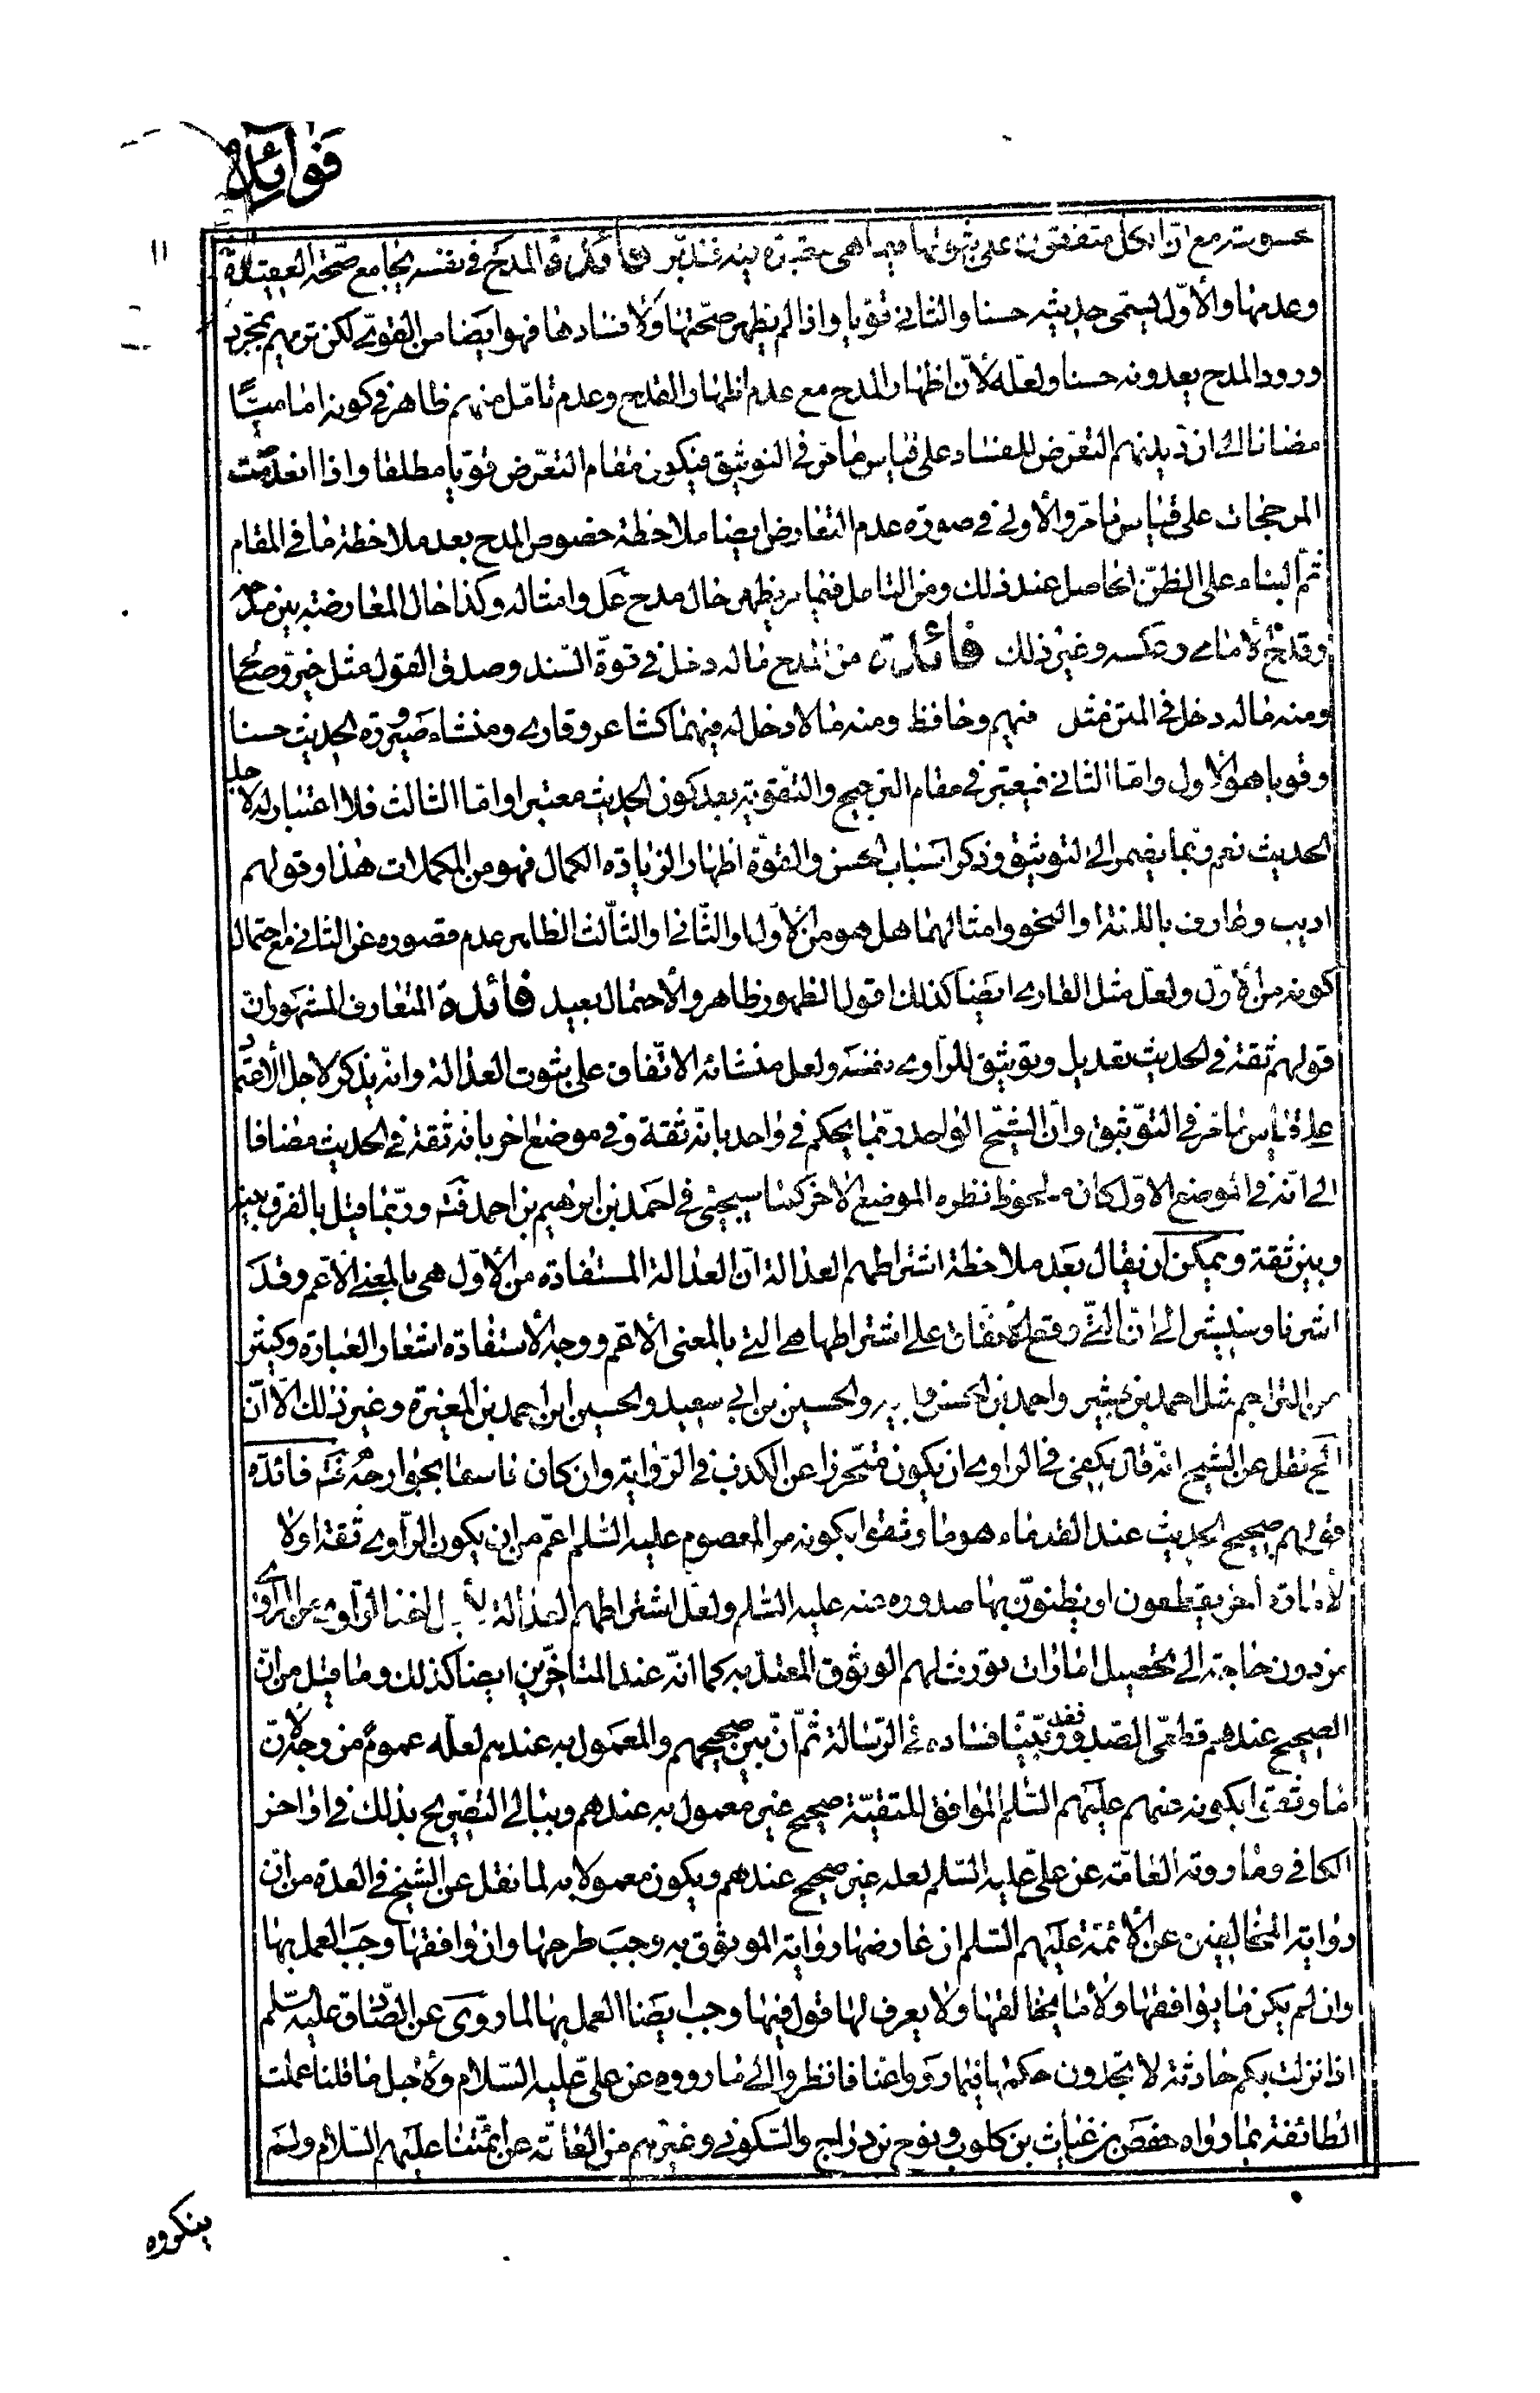 فوائد
١١
مع ان الكل متفقون على ثبوتها فيما هي معتبرة فيه فتدبر فائدة المدح في نفسه يجامع صحة العقيدة
وعدمها والأوّل يسمّى حديثه حسنا والثاني قويا واذا لم يظهر صحّتها ولا فسادها فهو ايضا من القوي لكن نريهم بمجرد
ورود المدح يعدونه حسنا ولعلّه لأنّ اظهار المدح مع عدم اظهار القدح وعدم تامّل منهم ظاهر في كونه اماميّا
مضافا الى انّ ديدنهم التعرّض للفساد على قياس ما مرّ في التوثيق فيكون مقام التعرّض قويّا مطلقا واذا انعدمت
المرجحات على قياس ما مرّ والأولى في صورة عدم التعارض ايضا ملاحظة خصوص المدح بعد ملاحظة ما في المقام
ثمّ البناء على الظنّ الحاصل عند ذلك ومن التامل فيما مر يظهر حال مدح عل وامثاله وكذا حال المعارضة بين مدح
وقدح الأمامي وعكسه وغير ذلك فائدة من المدح ما له دخل في قوّة السّند وصدق القول مثل خيّر وصالح
ومنه ما له دخل في المتن مثل فهيم وحافظ ومنه ما لا دخل له فيهما كشاعر وقاري ومنشاء صيرورة الحديث حسنا
وقويا هو الأول وامّا الثاني فيعتبر في مقام الترجيح والتقوية بعد كون الحديث معتبرا وامّا الثالث فلا اعتبار له لأجل
الحديث نعم ربّما يضم الى التوثيق وذكر اسباب الحسن والقوّة اظهارا لزيادة الكمال فهو من المكملات هذا وقولهم
اديب وعارف باللغة او النحو وامثالهما هل هو من الأوّل او الثّاني او الثّالث الظاهر عدم قصوره عن الثاني مع احتمال
كونه من الأوّل ولعلّ مثل القاري ايضا كذلك اقول الظهور ظاهر والأحتمال بعيد فائدة المتعارف المشهور ان
قولهم ثقة في الحديث تعديل وتوثيق للرّاوي نفسه ولعل منشائه الاتّفاق على ثبوت العدالة وانّه يذكر لاجل الأعتماد
على قياس ما مرّ في التوثيق وانّ الشيخ الواحد ربّما يحكم في واحد بانّه ثقة وفي موضع اخر بانه ثقة في الحديث مضافا
الى انّه في الموضع الاوّل كان ملحوظ نظره الموضع الآخر كما سيجئ في احمد بن ابرهيم بن احمد فته وربّما قيل بالفرق بينه
وبين ثقة ويمكن ان يقال بعد ملاحظة اشتراطهم العدالة انّ العدالة المستفادة من الأوّل هي بالمعنى الأعّم وقد
اشرنا وسنشير الى انّ الّتي وقع الأتّفاق على اشتراطها هي التي بالمعنى الأعّم ووجه الأستفادة اشعار العبارة وكثير
من التراجم مثل احمد بن بشير واحمد بن الحسن والحسين بن ابي سعيد والحسين ابن احمد بن المغيرة وغير ذلك الّا انّ
نقل عن الشيخ انّه قال يكفي في الراوي ان يكون متحّرزا عن الكذب في الرّواية وان كان فاسقا بجوارحه فائدة
قولهم صحيح الحديث عند القدماء هو ما وثقوا بكونه من المعصوم عليه السّلم اعمّ من ان يكون الرّاوي ثقة اولا
لأمارات اُخر يقطعون او يظنوّن بها صدوره عنه عليه السّلم ولعّل اشتراطهم العدالة لأجل اخذ الرّاوي عن الراوي
من دون حاجة الى تحصيل امارات تورث لهم الوثوق المعتدّ به كما انّه عند المتاخّرين ايضا كذلك وما قيل من انّ
الصحيح عندهم قطعي الصّدور فقد بيّنّا فساده في الرّسالة ثمّ انّ بين صحيحهم والمعمول به عندهم لعلّه عموم من وجه لأنّ
ما وثقوا بكونه عنهم عليهم السّلم الموافق للتقيّة صحيح غير معمول به عندهم وببالي التصريح بذلك في اواخر
الكافي وما روته العامّة عن علّي عليه السّلم لعله غير صحيح عندهم ويكون معمولا به لما نقل عن الشيخ في العدة من انّ
رواية المخالفين عن الأئمّة عليهم السّلم ان عارضها رواية الموثوق به وجب طرحها وان وافقها وجب العمل بها
وان لم يكن ما يوافقها ولا ما يخالفها ولا يعرف لها قول فيها وجب ايضا العمل بها لما روى عن الصّادق عليه السّلم
اذا نزلت بكم حادثة لا تجدون حكمها فيما رووا عنا فانظروا الى ما رووه عن علّي عليه السّلام ولأجل ما قلنا عملت
الطائفة بما رواه حفص بن غياث بن كلوب ونوح بن دراج والسّكوني وغيرهم من العامّة عن ائمّتنا عليهم السّلام ولم
ينكروه